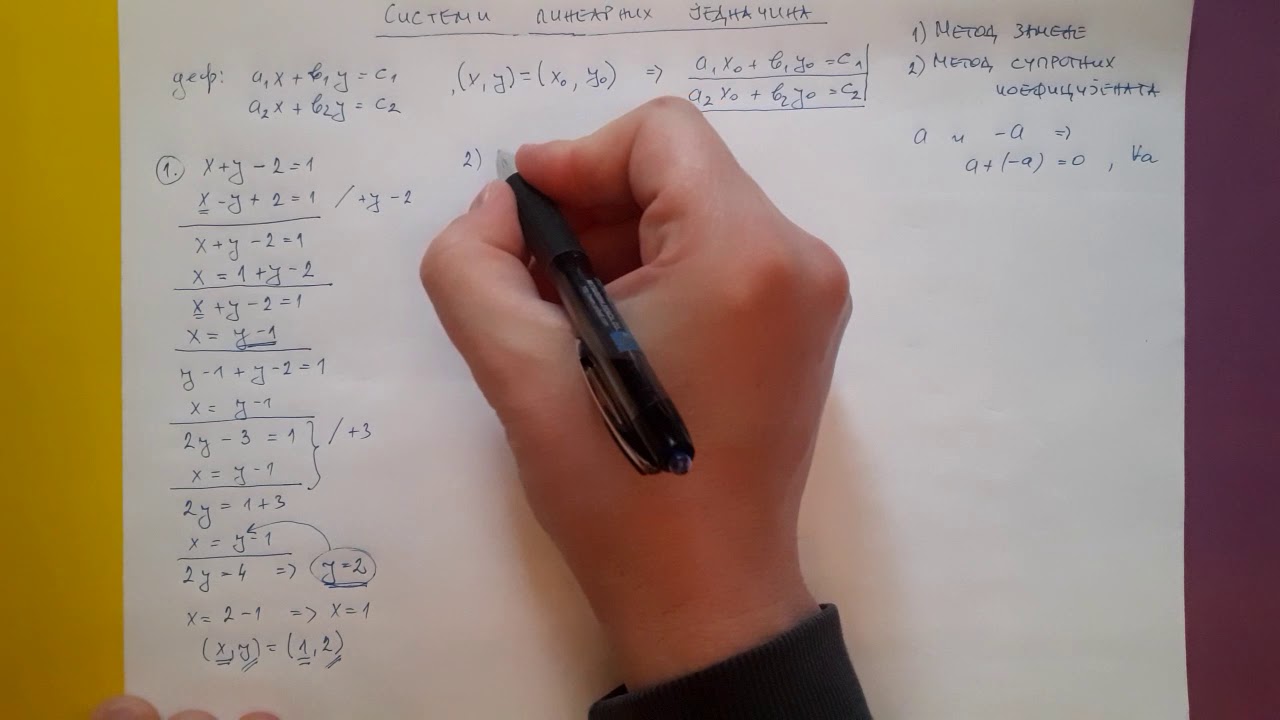 СИСТЕМИ ЛИНЕАРНИХ ЈЕДНАЧИНА
деф: a₁x + b₁y = c₁
a₂x + b₂y = c₂
(x, y) = (x₀, y₀) =>
a₁x₀ + b₁y₀ = c₁
a₂x₀ + b₂y₀ = c₂
1) МЕТОД ЗАМЕНЕ
2) МЕТОД СУПРОТНИХ
КОЕФИЦИЈЕНАТА
a и -a =>
a + (-a) = 0 , ∀a
1. x + y - 2 = 1
x - y + 2 = 1 / +y - 2
x + y - 2 = 1
x = 1 + y - 2
x + y - 2 = 1
x = y - 1
y - 1 + y - 2 = 1
x = y - 1
2y - 3 = 1 } / +3
x = y - 1
2y = 1 + 3
x = y - 1
2y = 4 => y = 2
x = 2 - 1 => x = 1
(x, y) = (1, 2)
2)